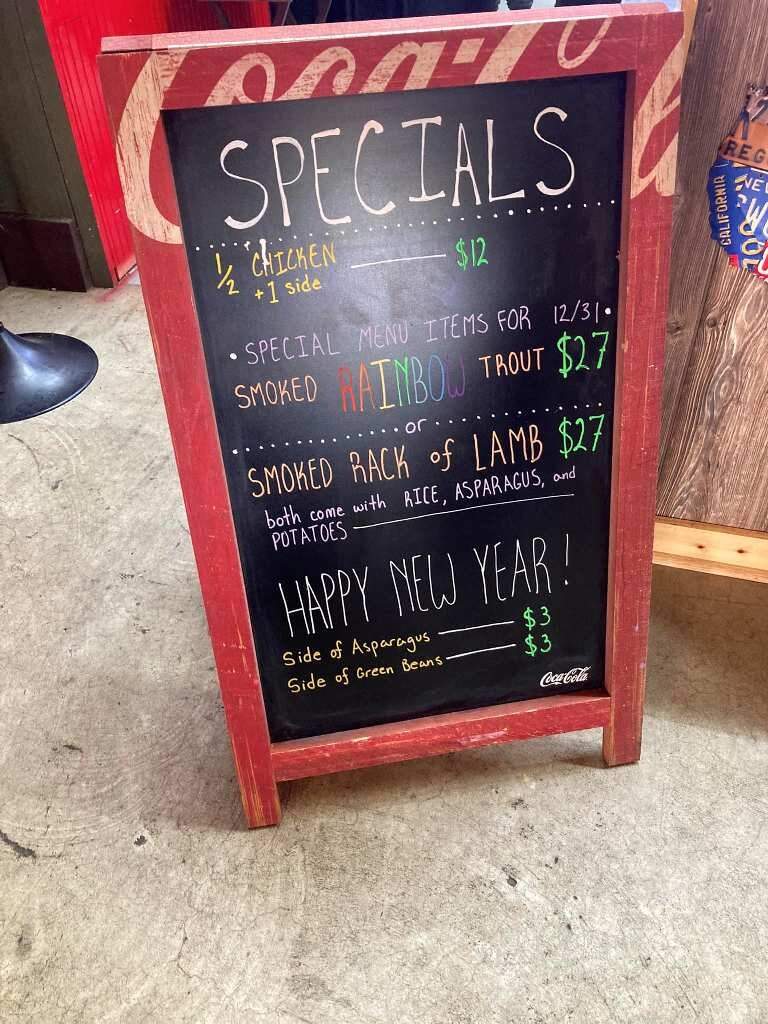 Coca-Cola
SPECIALS
1/2 CHICKEN $12
+1 side
• SPECIAL MENU ITEMS FOR 12/31 •
SMOKED RAINBOW TROUT $27
or
SMOKED RACK of LAMB $27
both come with RICE, ASPARAGUS, and
POTATOES
HAPPY NEW YEAR!
Side of Asparagus $3
Side of Green Beans $3
Coca-Cola
CALIFORNIA